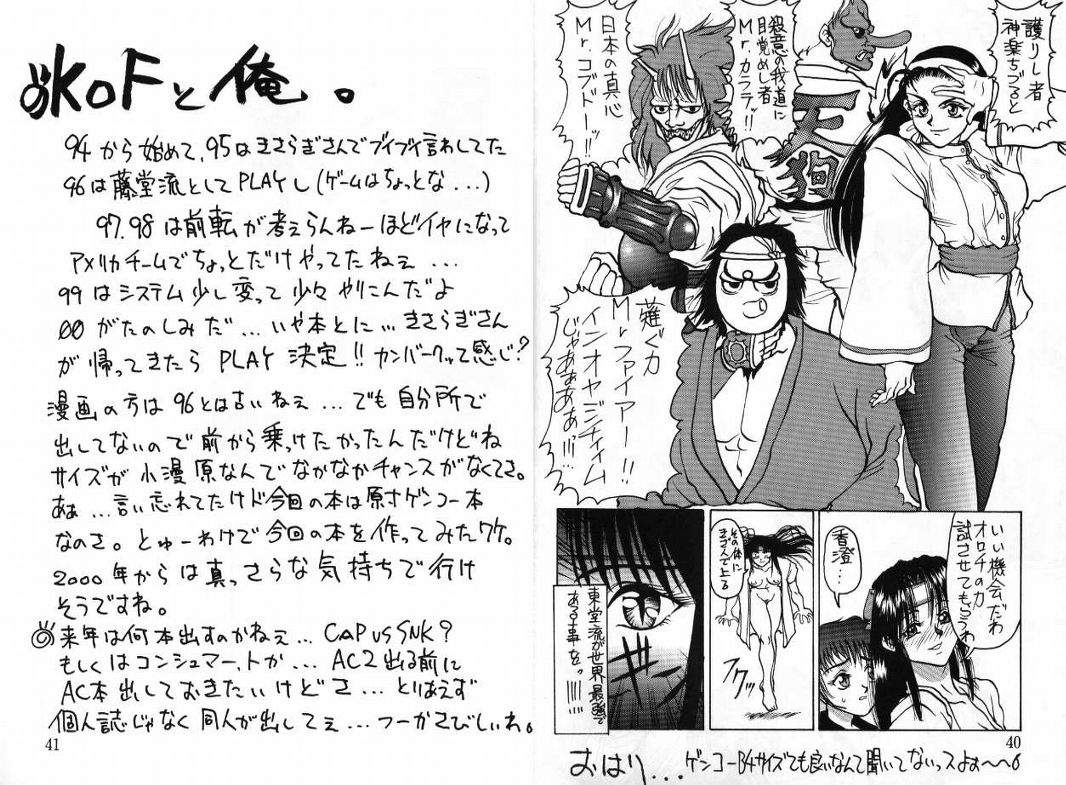 護りし者
神楽ちづると
殺意の我道に
目覚めし者
Mr.カラテッ!!
日本の真心
Mr.コブドーッ!!
天狗
薙ぐ力
Mrファイアー!!
インオヤジティイム
じゃあぁぁぁ!!!…
いい機会だわ
オロチの力
試させてもらうわ
香澄…
その体に
きざんで上る
フクッ
東堂流が世界最強で
ある事を。!!!!!
40
おはり... ゲンコーB4サイズでも良いなんて聞いてないっスよぉ〜〜6
◎KOFと俺。
94から始めて、95はきさらぎさんでブイブイ言わしてた
96は藤堂流としてPLAYし(ゲームはちょっとな...)
97.98は前転が考えらんねーほどイヤになって
アメリカチームでちょっとだけやってたねぇ...
99はシステム少し変って少々やりこんだよ
00がたのしみだ...いや本とに...きさらぎさん
が帰ってきたらPLAY決定!!カンバークッて感じ?
漫画の方は96とは古いねぇ...でも自分所で
出してないので前から乗っけたかったんだけどね
サイズが小漫原なんでなかなかチャンスがなくてさ。
あぁ...言い忘れてたけド今回の本は原寸ゲンコー本
なのさ。とゅーわけで今回の本を作ってみたワケ。
2000年からは真っさらな気持ちで行け
そうですね。
◎来年は何本出すのかねぇ...CAP VS SNK?
もしくはコンシュマー、トか...AC2出る前に
AC本出しておきたいけどさ...とりあえず
個人誌じゃなく同人が出してぇ...つーかさびしいね。
41